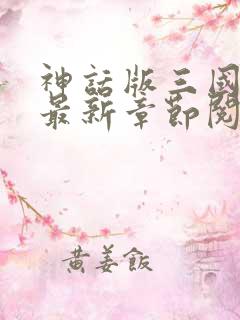 神話版三國
最新章節閱
黄姜飯